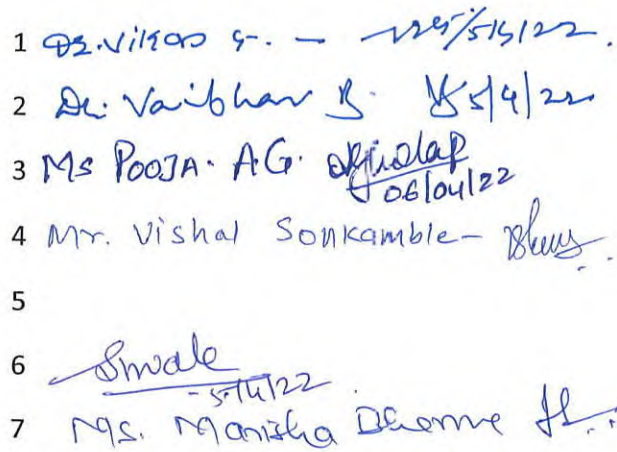 1 Dr. Vikas G. - 5/5/22.
2 Dr. Vaibhav B. 5/4/22
3 Ms POOJA. A.G. 06/04/22
4 Mr. Vishal Sonkamble -
5
6 5/4/22
7 Ms. Manisha